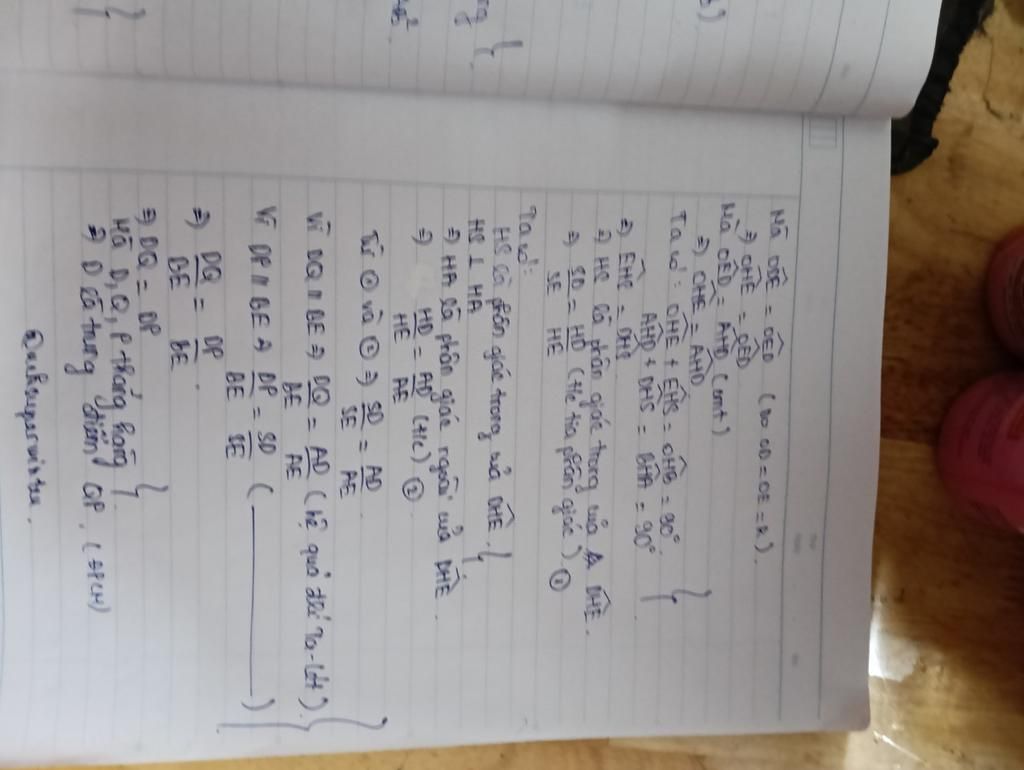 Mà ODE = OED (do OD = OE = R).
⇒ OHE = OED
Mà OED = AHD (cmt)
⇒ OHE = AHD
Ta có: OHE + EHS = OHB = 90°.
AHD + DHS = BHA = 90°
}
⇒ EHS = DHS
⇒ HS là phân giác trong của Δ DHE.
⇒ SD/SE = HD/HE (t/c tia phân giác). ①
Ta có:
HS là phân giác trong của DHE. }
HS ⊥ HA
⇒ HA là phân giác ngoài của DHE.
⇒ HD/HE = AD/AE (t/c) ②
Từ ① và ② ⇒ SD/SE = AD/AE
Vì DQ // BE ⇒ DQ/BE = AD/AE (hệ quả đlí Ta-lét).
Vì DP // BE ⇒ DP/BE = SD/SE ( ——— )
}
⇒ DQ/BE = DP/BE.
⇒ DQ = DP
Mà D, Q, P thẳng hàng }
⇒ D là trung điểm QP. (đpcm)